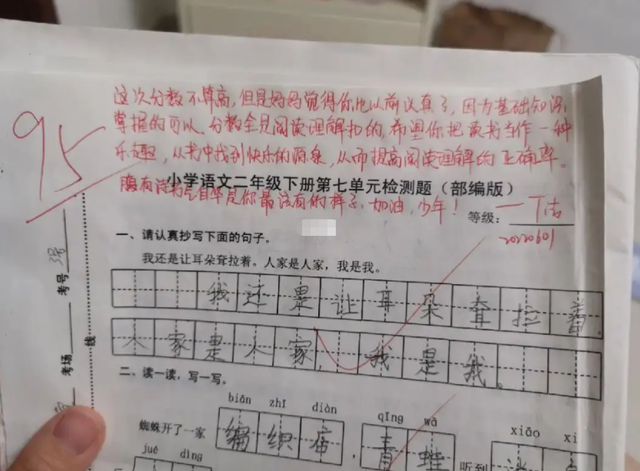 95
这次分数不算高,但是妈妈觉得你比以前认真了,因为基础知识
掌握的可以,分数全是阅读理解扣的,希望你把读书当作一种
乐趣,从书中找到快乐的源泉,从而提高阅读理解的正确率。
小学语文二年级下册第七单元检测题(部编版)
腹有诗书气自华是你最该有的样子,加油,少年!
等级:
20220601
一、请认真抄写下面的句子。
我还是让耳朵耷拉着。人家是人家,我是我。
我还是让耳朵耷拉着。
人家是人家,我是我。
二、读一读,写一写。
biān zhī diàn
qīng wā
xiāo xi
蜘蛛开了一家
编织店
,
青蛙
听到
jué dìng
考号
考场
线